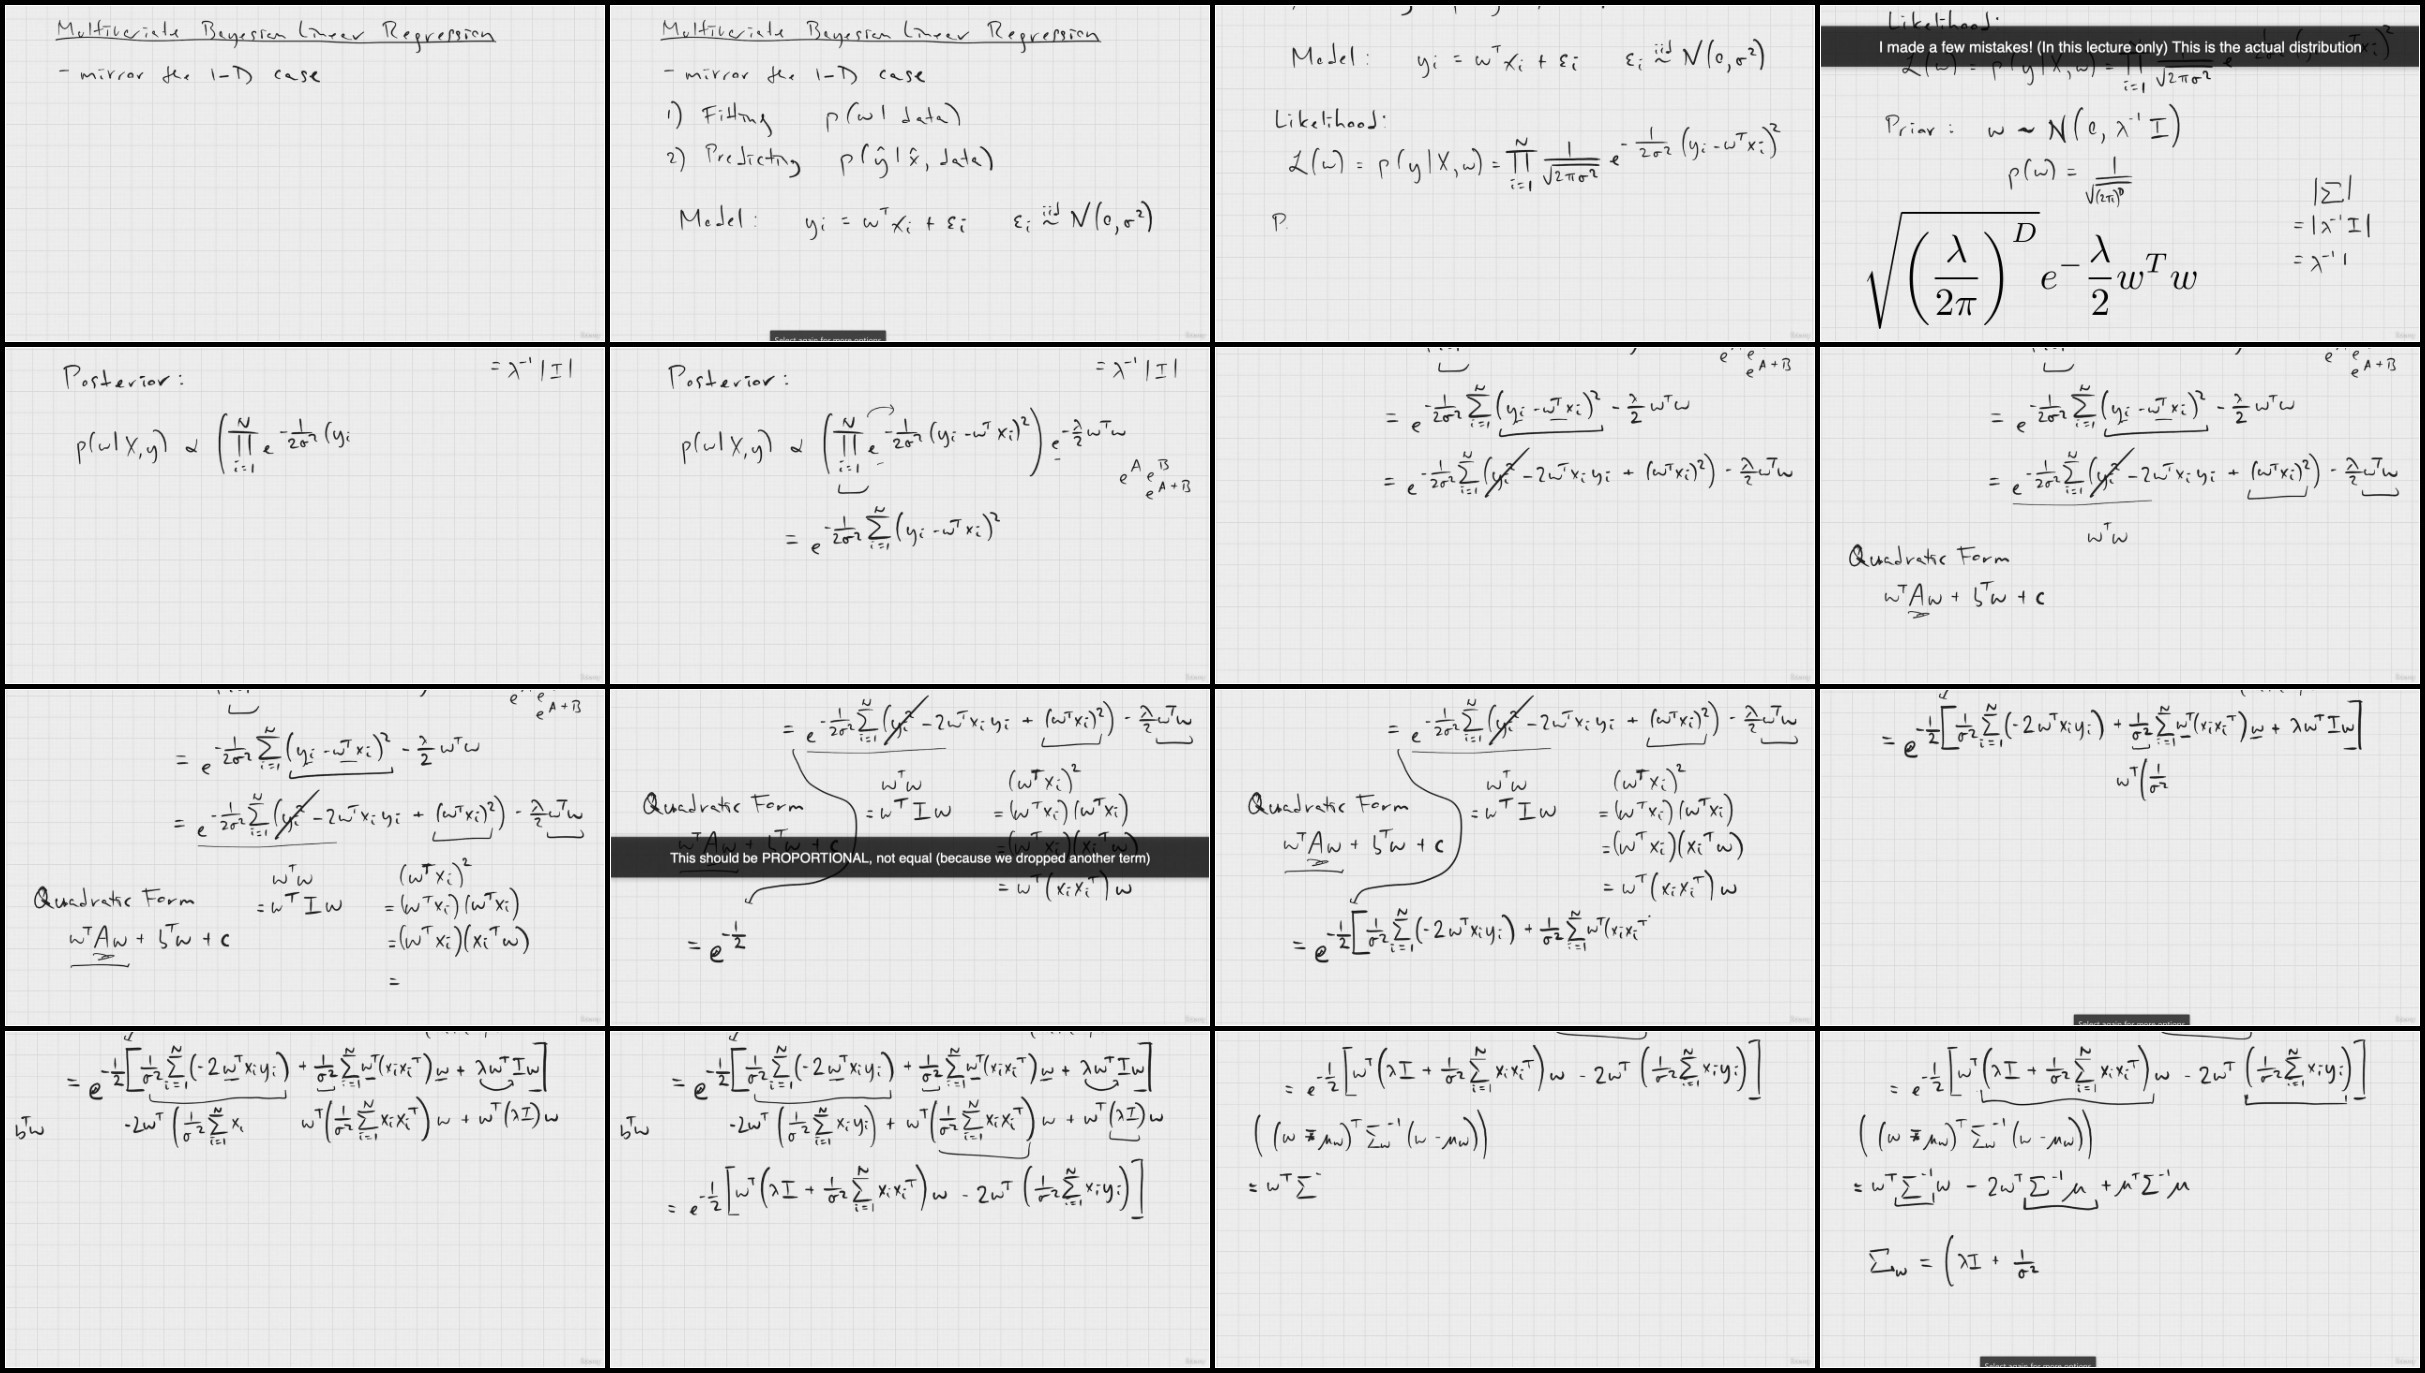 Multivariate Bayesian Linear Regression
- mirror the 1-D case
Multivariate Bayesian Linear Regression
- mirror the 1-D case
1) Fitting p(w| data)
2) Predicting p(ŷ|x̂, data)
Model: yᵢ = wᵀxᵢ + εᵢ εᵢ ~ⁱⁱᵈ N(0,σ²)
Model: yᵢ = wᵀxᵢ + εᵢ εᵢ ~ⁱⁱᵈ N(0,σ²)
Likelihood:
ℒ(w) = p(y|X,w) = ∏_{i=1}^{N} 1/√(2πσ²) e^{-1/(2σ²) (yᵢ-wᵀxᵢ)²}
P
Likelihood:
I made a few mistakes! (In this lecture only) This is the actual distribution
ℒ(w) = p(y|X,w) = ∏_{i=1} 1/√(2πσ²) e
Prior: w ~ N(0, λ⁻¹I)
p(w) = 1/√((2π)ᴰ
|Σ|
= |λ⁻¹I|
= λ⁻¹|
√((λ/2π)^D) e^{-λ/2 wᵀw}
= λ⁻¹|I|
Posterior:
p(w|X,y) ∝ (∏_{i=1}^{N} e^{-1/(2σ²) (yᵢ
= λ⁻¹|I|
Posterior:
p(w|X,y) ∝ (∏_{i=1}^{N} e^{-1/(2σ²) (yᵢ-wᵀxᵢ)²}) e^{-λ/2 wᵀw}
e^A e^B
e^{A+B}
= e^{-1/(2σ²) Σ_{i=1}^{N} (yᵢ-wᵀxᵢ)²}
e^{A+B}
= e^{-1/(2σ²) Σ_{i=1}^{N} (yᵢ-wᵀxᵢ)² - λ/2 wᵀw}
= e^{-1/(2σ²) Σ_{i=1}^{N} (yᵢ² - 2wᵀxᵢyᵢ + (wᵀxᵢ)²) - λ/2 wᵀw}
e^{A+B}
= e^{-1/(2σ²) Σ_{i=1}^{N} (yᵢ-wᵀxᵢ)² - λ/2 wᵀw}
= e^{-1/(2σ²) Σ_{i=1}^{N} (yᵢ² - 2wᵀxᵢyᵢ + (wᵀxᵢ)²) - λ/2 wᵀw}
wᵀw
Quadratic Form
wᵀAw + bᵀw + c
e^{A+B}
= e^{-1/(2σ²) Σ_{i=1}^{N} (yᵢ-wᵀxᵢ)² - λ/2 wᵀw}
= e^{-1/(2σ²) Σ_{i=1}^{N} (yᵢ² - 2wᵀxᵢyᵢ + (wᵀxᵢ)²) - λ/2 wᵀw}
wᵀw (wᵀxᵢ)²
Quadratic Form = wᵀIw = (wᵀxᵢ)(wᵀxᵢ)
wᵀAw + bᵀw + c =(wᵀxᵢ)(xᵢᵀw)
=
= e^{-1/(2σ²) Σ_{i=1}^{N} (yᵢ² - 2wᵀxᵢyᵢ + (wᵀxᵢ)²) - λ/2 wᵀw}
wᵀw (wᵀxᵢ)²
Quadratic Form = wᵀIw = (wᵀxᵢ)(wᵀxᵢ)
This should be PROPORTIONAL, not equal (because we dropped another term)
= wᵀ(xᵢxᵢᵀ)w
= e^{-1/2}
= e^{-1/(2σ²) Σ_{i=1}^{N} (yᵢ² - 2wᵀxᵢyᵢ + (wᵀxᵢ)²) - λ/2 wᵀw}
wᵀw (wᵀxᵢ)²
Quadratic Form = wᵀIw = (wᵀxᵢ)(wᵀxᵢ)
wᵀAw + bᵀw + c =(wᵀxᵢ)(xᵢᵀw)
= wᵀ(xᵢxᵢᵀ)w
= e^{-1/2 [1/σ² Σ_{i=1}^{N} (-2wᵀxᵢyᵢ) + 1/σ² Σ_{i=1}^{N} wᵀ(xᵢxᵢᵀ}
= e^{-1/2 [1/σ² Σ_{i=1}^{N} (-2wᵀxᵢyᵢ) + 1/σ² Σ_{i=1}^{N} wᵀ(xᵢxᵢᵀ)w + λwᵀIw]}
wᵀ(1/σ²
= e^{-1/2 [1/σ² Σ_{i=1}^{N} (-2wᵀxᵢyᵢ) + 1/σ² Σ_{i=1}^{N} wᵀ(xᵢxᵢᵀ)w + λwᵀIw]}
bᵀw -2wᵀ(1/σ² Σ_{i=1}^{N} xᵢ wᵀ(1/σ² Σ_{i=1}^{N} xᵢxᵢᵀ)w + wᵀ(λI)w
= e^{-1/2 [1/σ² Σ_{i=1}^{N} (-2wᵀxᵢyᵢ) + 1/σ² Σ_{i=1}^{N} wᵀ(xᵢxᵢᵀ)w + λwᵀIw]}
bᵀw -2wᵀ(1/σ² Σ_{i=1}^{N} xᵢyᵢ) + wᵀ(1/σ² Σ_{i=1}^{N} xᵢxᵢᵀ)w + wᵀ(λI)w
= e^{-1/2 [wᵀ(λI + 1/σ² Σ_{i=1}^{N} xᵢxᵢᵀ)w - 2wᵀ(1/σ² Σ_{i=1}^{N} xᵢyᵢ)]}
= e^{-1/2 [wᵀ(λI + 1/σ² Σ_{i=1}^{N} xᵢxᵢᵀ)w - 2wᵀ(1/σ² Σ_{i=1}^{N} xᵢyᵢ)]}
((w - μ_w)ᵀ Σ_w⁻¹ (w - μ_w))
= wᵀΣ⁻
= e^{-1/2 [wᵀ(λI + 1/σ² Σ_{i=1}^{N} xᵢxᵢᵀ)w - 2wᵀ(1/σ² Σ_{i=1}^{N} xᵢyᵢ)]}
((w - μ_w)ᵀ Σ_w⁻¹ (w - μ_w))
= wᵀΣ⁻¹w - 2wᵀΣ⁻¹μ + μᵀΣ⁻¹μ
Σ_w = (λI + 1/σ²